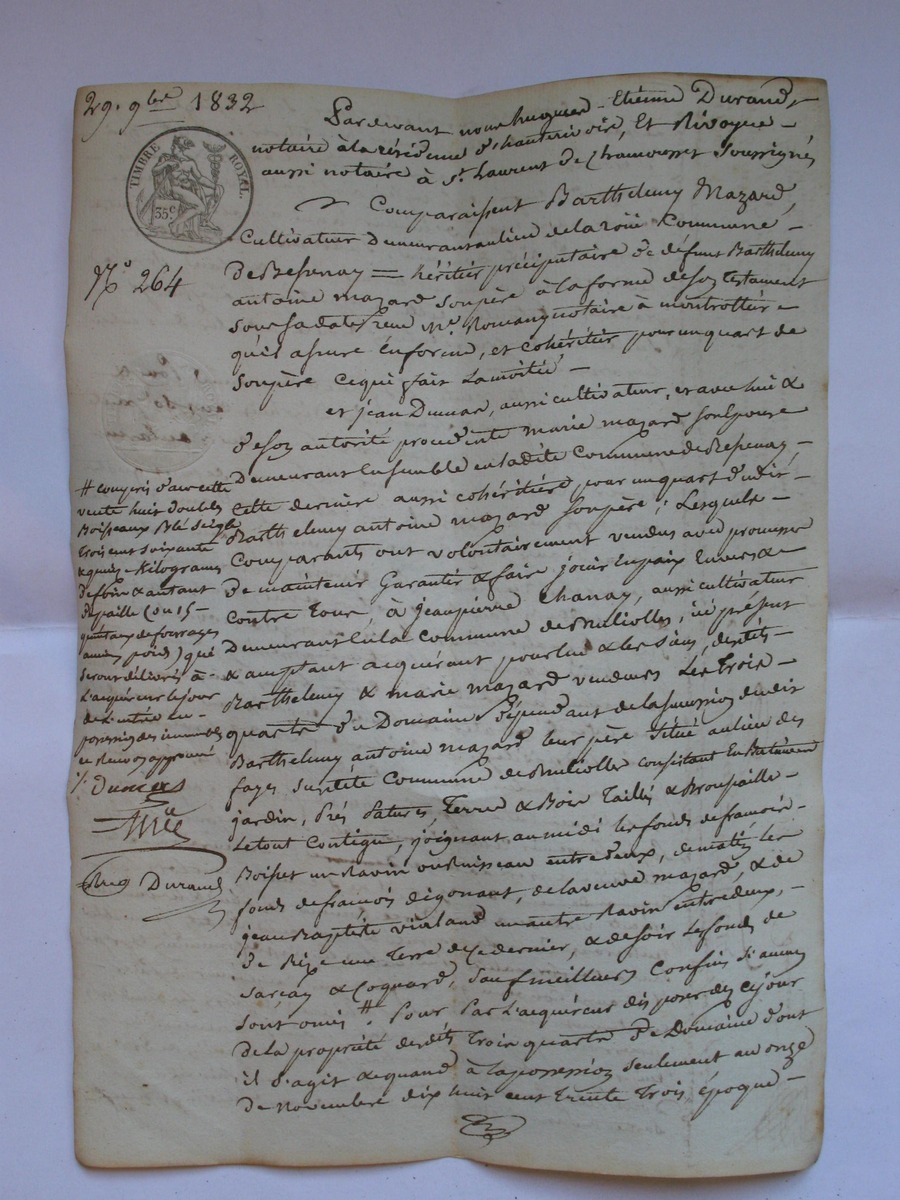 29. 9bre 1832
TIMBRE ROYAL
35 c
No 264
Pardevant nous hugues - Etienne Durand,
notaire à la résidence d'hauterivoire, Et Rivoyre -
aussi notaire à St. Laurent de Chamousset Soussignés
Comparaissent Barthelemy Mazard,
Cultivateur Demeurant au lieu de la roüi Commune -
De Bessenay = héritier préciputaire de défunt Barthelemy
antoine mazard son père à la forme de son testament
sous sa date, reçu Me. Romany notaire à montrottier -
qu'il assure En forme, et Cohéritier pour un quart de
son père Ce qui fait La moitié -
et jean Dumas, aussi cultivateur, et avec lui &
de son autorité procédante marie mazard son Epouse
Demeurant Ensemble en ladite Commune de Bessenay -
Cette dernière aussi cohéritière pour un quart dudit -
Barthelemy antoine mazard son père ; Lesquels -
Comparants ont volontairement vendus avec promesse
De maintenir Garantir & faire jouir En paix Envers &
Contre Tous, à jean pierre Chanay, aussi cultivateur
Demeurant En la Commune de Brulliolles, ici présent
& acceptant acquérant pour lui & les siens, desdits -
Barthelemy & marie mazard vendeurs Les Trois -
quarts d'un Domaine dépendant de la succession dudit
Barthelemy antoine mazard leur père situé au lieu des
fayes susdite Commune de Brulliolles consistant En Batiments
jardin, Prés Patures, Terres & Bois Taillis & Broussaille -
Le tout Contigu, joignant au midi les fonds de francois -
Boisset un Ravin ou Ruisseau entre deux, de matin les
fonds de francois digonant, de la veuve mazard, & de
jean Baptiste vialand un autre Ravin entre deux, -
de Bize une Terre de ce dernier, & de soir Les fonds de
Sarcay & Coquard, Sauf meilleurs Confins Si aucuns
sont omis # Pour Par L'acquéreur disposer dès ce jour
De la propriété desdits Trois quarts de Domaine dont
il s'agit & quand à la possession seulement au onze
de Novembre dix huit cent trente Trois époque -
# compris d'avec cette
vente huit doubles
Boisseaux Blé Seigle
trois cent soixante
& quinze Kilogrames
de foin & autant
de paille (ou 15 -
quintaux de fourrages
ancien poids) qui
seront délivrés à -
L'acquéreur le jour
de L'entrée en -
possession des immeubles
ce Renvoy approuvé
Dumas
Hug Durand